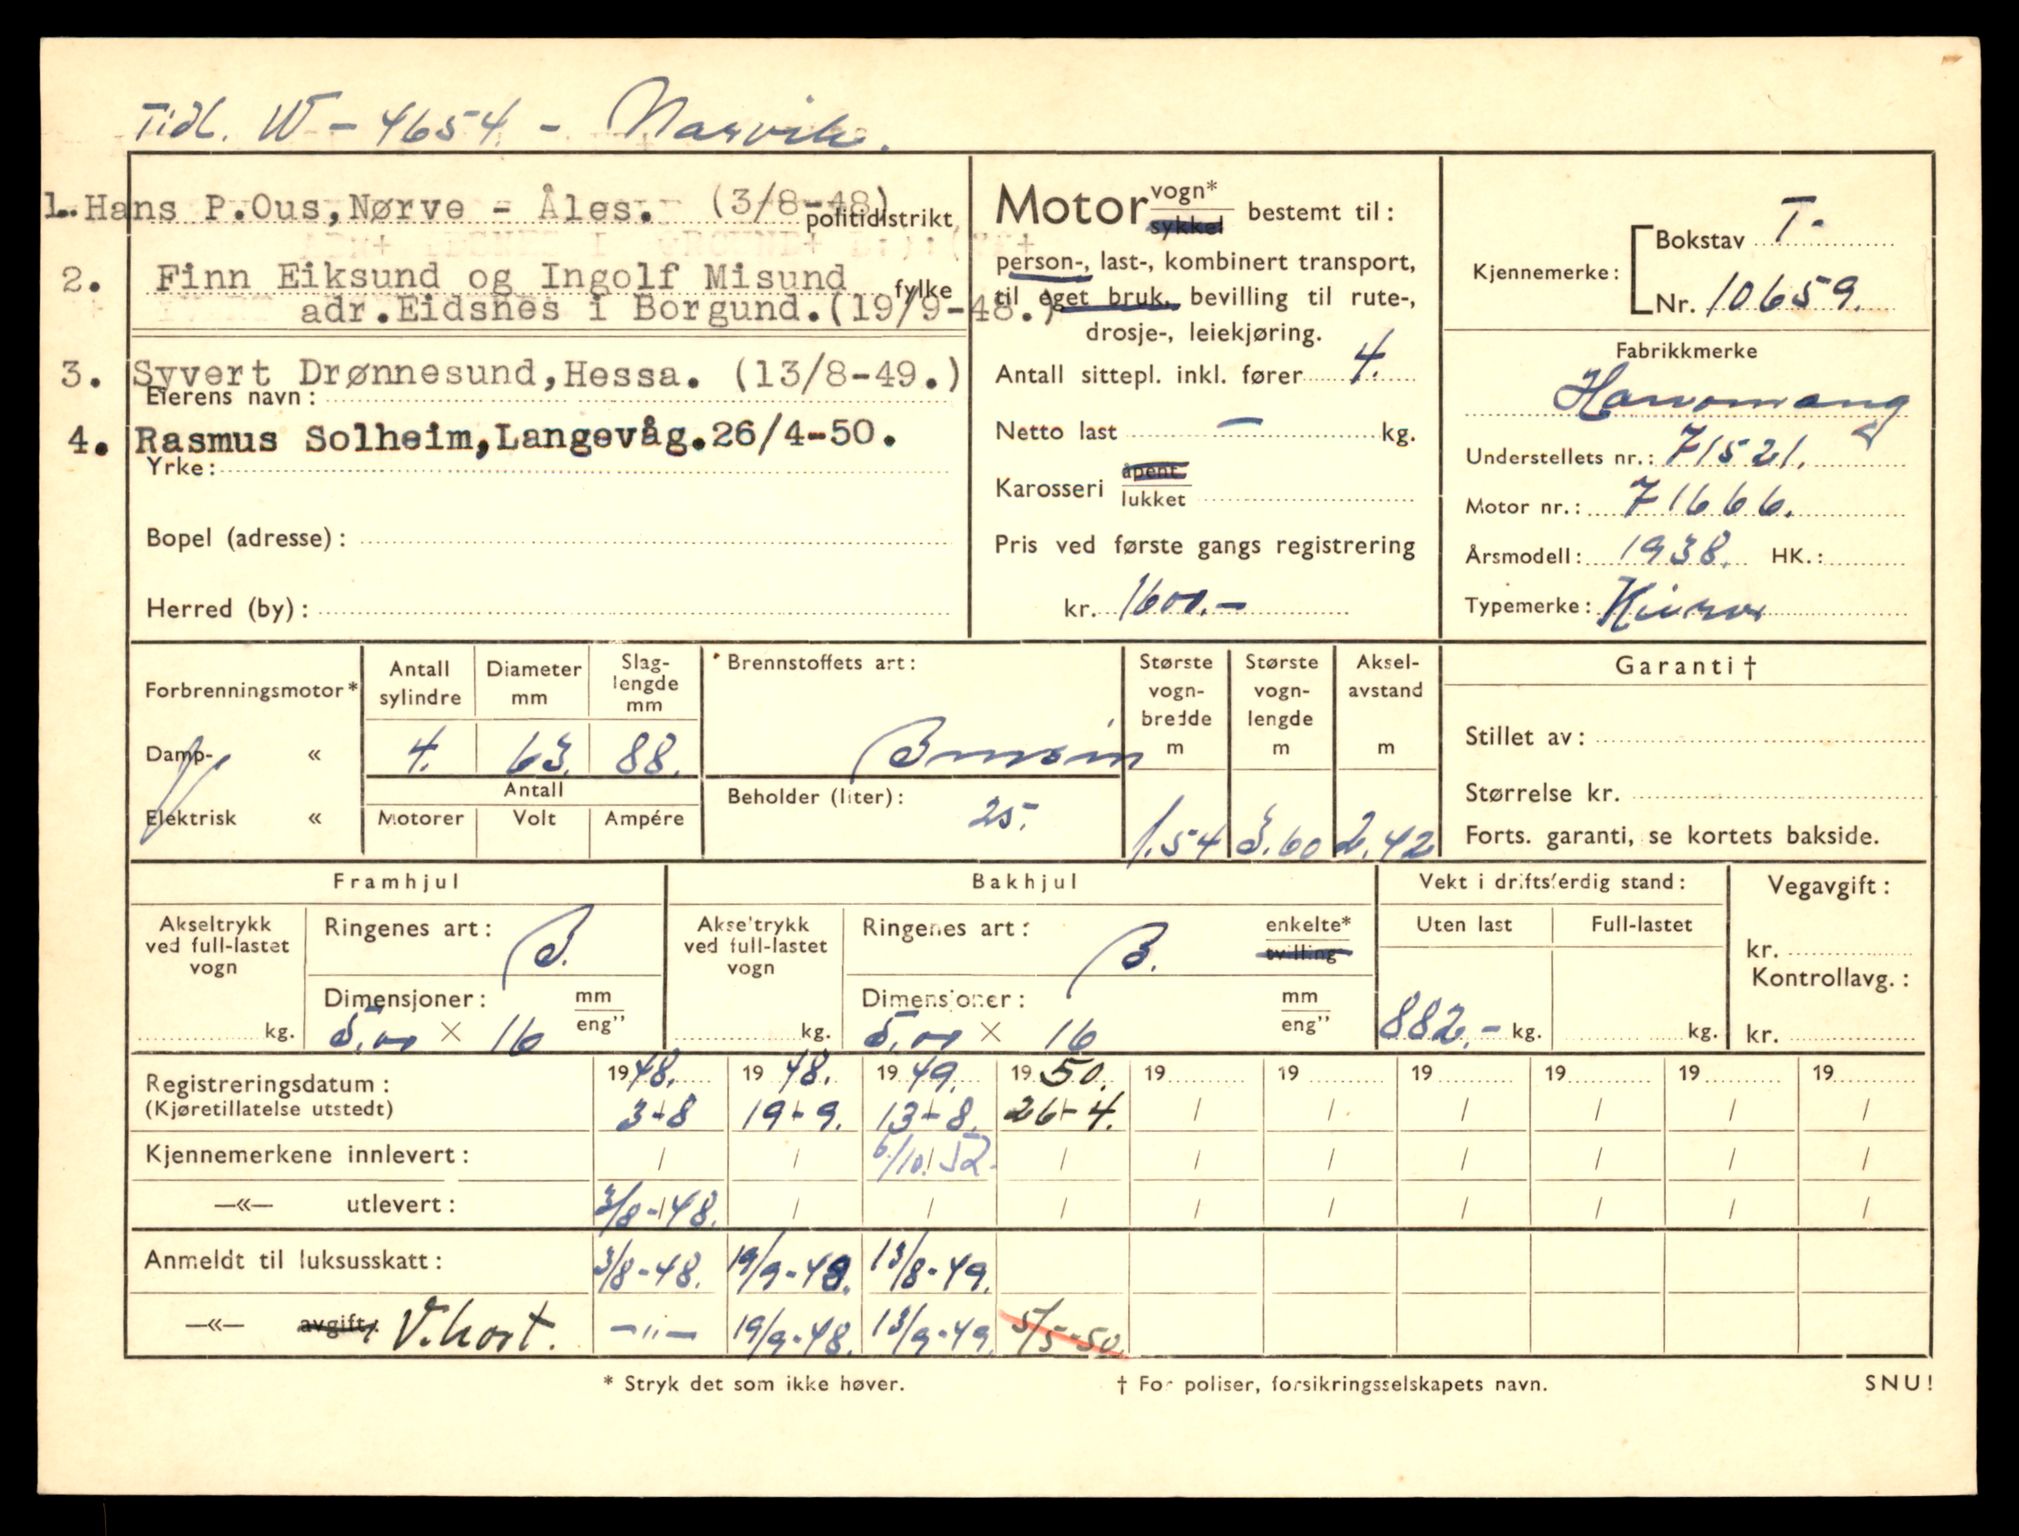 Tidl. W - 4654. - Narvik.
1. Hans P.Ous,Nørve - Åles. (3/8-48)
politidistrikt
2. Finn Eiksund og Ingolf Misund
fylke
adr.Eidsnes i Borgund.(19/9-48.)
3. Syvert Drønnesund,Hessa. (13/8-49.)
Eierens navn:
4. Rasmus Solheim,Langevåg.26/4-50.
Yrke:
Bopel (adresse):
Herred (by):
Motor vogn* sykkel bestemt til:
person-, last-, kombinert transport,
til eget bruk, bevilling til rute-,
drosje-, leiekjøring.
Antall sittepl. inkl. fører 4.
Netto last — kg.
Karosseri åpent lukket
Pris ved første gangs registrering
kr. 1600.-
Kjennemerke: Bokstav T-
Nr. 10659.
Fabrikkmerke
Hanomang
Understellets nr.: 71521.
Motor nr.: 71666.
Årsmodell: 1938. HK.:
Typemerke:
Forbrenningsmotor*
Damp- «
Elektrisk «
Antall sylindre
4.
Diameter mm
63.
Slag-lengde mm
88.
Antall
Motorer Volt Ampére
Brennstoffets art:
Bensin
Beholder (liter): 25.
Største vogn-bredde m
1.54
Største vogn-lengde m
3.60
Aksel-avstand m
2.42
Garanti †
Stillet av:
Størrelse kr.
Forts. garanti, se kortets bakside.
Framhjul
Akseltrykk ved full-lastet vogn
kg.
Ringenes art: B.
Dimensjoner: mm eng"
5.00 × 16
Bakhjul
Akseltrykk ved full-lastet vogn
kg.
Ringenes art: B. enkelte* tvilling
Dimensjoner: mm eng"
5.00 × 16
Vekt i driftsferdig stand:
Uten last Full-lastet
882.- kg. kg.
Vegavgift:
kr.
Kontrollavg.:
kr.
Registreringsdatum: 1948. 19 48. 19 49. 19 50. 19 19 19 19 19 19
(Kjøretillatelse utstedt) 3-8 19-9. 13-8. 26-4. / / / / / /
Kjennemerkene innlevert: / / 6/10. 52. / / / / / / /
—«— utlevert: 3/8-48. / / / / / / / / /
Anmeldt til luksusskatt: 3/8-48. 19/9-48. 13/8-49.
—«— avgift: V.kort. —"— 19/9-48. 13/9-49. 5/5-50.
* Stryk det som ikke høver. † For poliser, forsikringsselskapets navn. SNU!